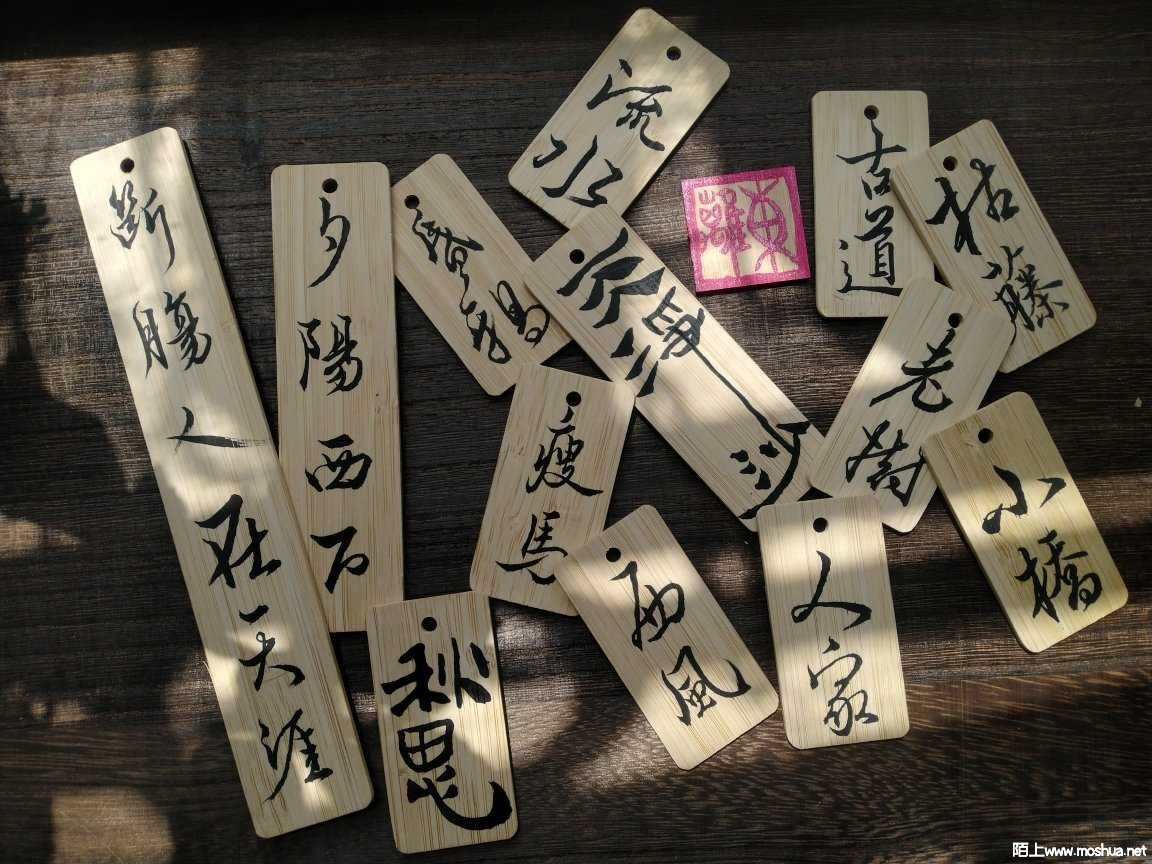 天淨沙
秋思
枯藤
老樹
昏鴉
小橋
流水
人家
古道
西風
瘦馬
夕陽西下
断腸人在天涯
陌上www.moshua.net